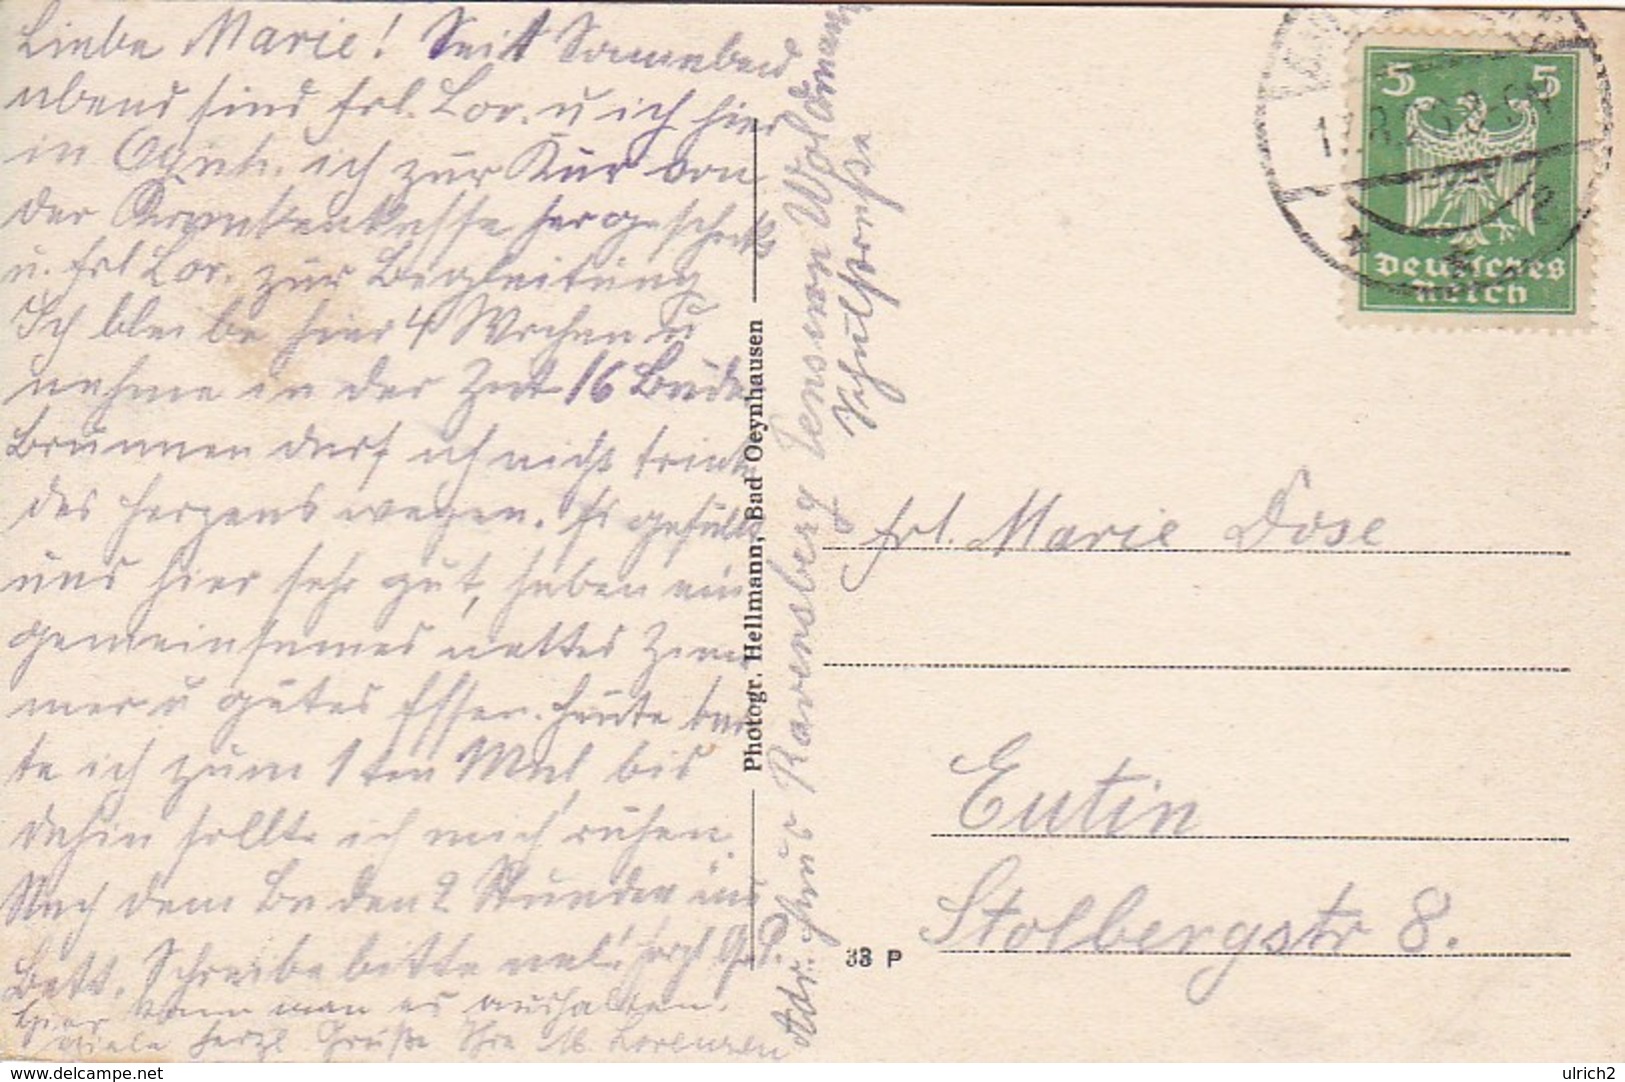 Liebe Marie! Seit Sonnabend
abend sind Frl. Lor. u ich hier
in Oeynh. ich zur Kur von
der Krankenkasse hergeschickt
u. Frl Lor. zur Begleitung
Ich bleibe hier 4 Wochen u
nehme in der Zeit 16 Bäder
Brunnen darf ich nicht trinken
des Herzens wegen. Es gefällt
uns hier sehr gut, haben ein
gemeinsames nettes Zim
mer u gutes Essen. Heute bade
te ich zum 1ten Mal, bis
dahin sollte ich mich ruhen.
Nach dem Baden 2 Stunden ins
Bett. Schreibe bitte mal!
Hier kann man es aushalten.
Viele herzl Grüße Ihre M. Lorenzen
Photogr. Hellmann, Bad Oeynhausen
Adr. Haus Ravensberg Pens von Woldmann
Schulstraße
5 5
Deutsches
Reich
Frl. Marie Dose
Eutin
Stolbergstr 8.
38 P
https://www.delcampe.net
ulrich2